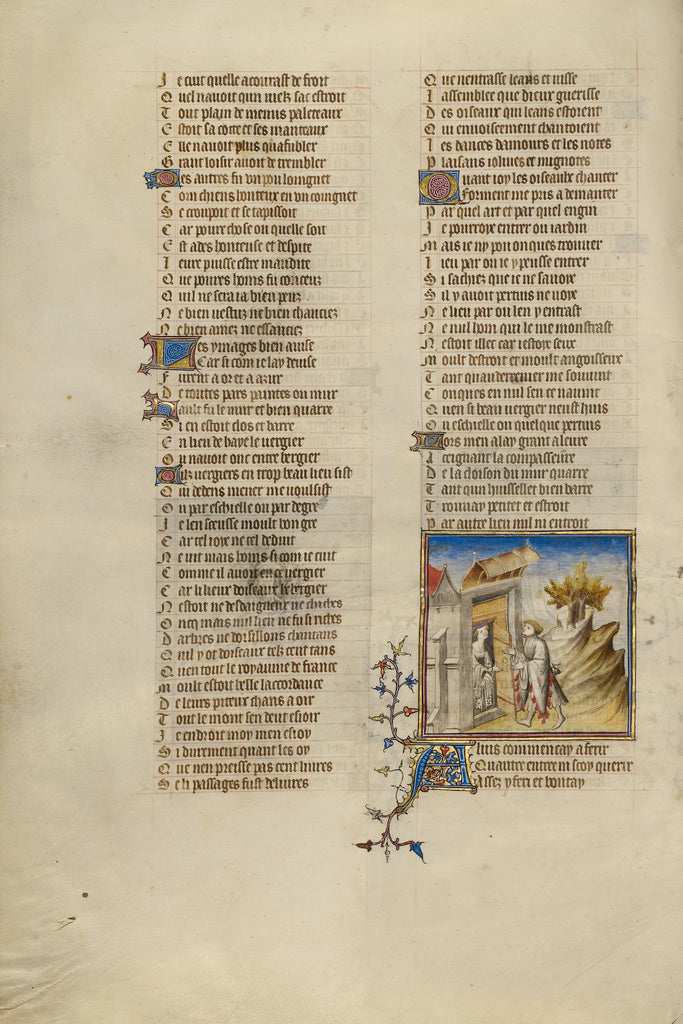 Je cuit quelle acourast de froit
Quel nauoit qun uielz sac estroit
Tout plain de menus paleteaux
Estoit sa cotte et ses manteaux
Eue nauoit plus quafubler
Grant loisir auoit de trembler
Des autres fu vn pou loingnet
Com chiens honteux en vn coingnet
Se croupoit et se tapissoit
Car poure chose ou quelle soit
Est ades honteuse et despite
Leure puisse estre maudite
Que poures homs fu conceuz
Quil ne sera ia bien peuz
Ne bien uestuz ne bien chauciez
Ne bien amez ne essauciez
Les ymages bien auise
Car si com ie lay deuise
Furent a or et a azur
De toutes pars paintes ou mur
Hault fu le mur et bien quarre
Si en estoit clos et barre
En lieu de haye le uergier
Ou nauoit onc entre bergier
Cilz uergiers en trop beau lieu sist
Qui dedens mener me uoulsist
Ou par eschielle ou par degre
Je len sceusse moult bon gre
Car tel ioye ne tel deduit
Ne uit mais homs si com ie cuit
Comme il auoit en ce uergier
Car li lieux doiseaux herbergier
Nestoit ne desdaigneux ne chiches
Oncq mais nul lieu ne fu si riches
Darbres ne doisillons chantans
Quil y ot doiseaux telz cent tans
Quen tout le royaume de france
Moult estoit belle laccordance
De leurs piteux chans a oir
Tout le mont sen deut esioir
Je endroit moy men esioy
Si durement quant les oy
Que nen preisse pas cent liures
Se li passages fust deliures
Que nentrasse leans et uisse
Lassemblee que dieux guerisse
Des oiseaux qui leans estoient
Qui enuoisement chantoient
Les dances damours et les notes
Plaisans iolives et mignotes
Quant ioy les oiseaulx chanter
Forment me pris a demanter
Par quel art et par quel engin
Je pourroye entrer ou iardin
Mais ie ny pou onques trouuer
Lieu par ou ie y peusse entrer
Si sachiez que ie ne sauoie
Sil y auoit pertuis ne uoye
Ne lieu par ou len y entrast
Ne nul hom qui le me monstrast
Nestoit illec car iestoie seux
Moult destroit et moult angoisseux
Tant quau derrenier me souuint
Conques en nul sen ce nauint
Quen si beau uergier neust huis
Ou eschielle ou quelque pertuis
Lors men alay grant aleure
Aceignant la compasseure
De la cloison du mur quarre
Tant qun huisselet bien barre
Trouuay petitet et estroit
Par autre lieu nul ni entroit
A luis commencay a ferir
Quautre entree ni scoy querir
Assez y feri et boutay